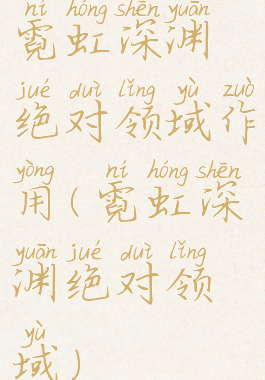 ní hóng shēn yuān
霓虹深渊
jué duì lǐng yù zuò
绝对领域作
yòng ní hóng shēn
用(霓虹深
yuān jué duì lǐng
渊绝对领
yù
域)